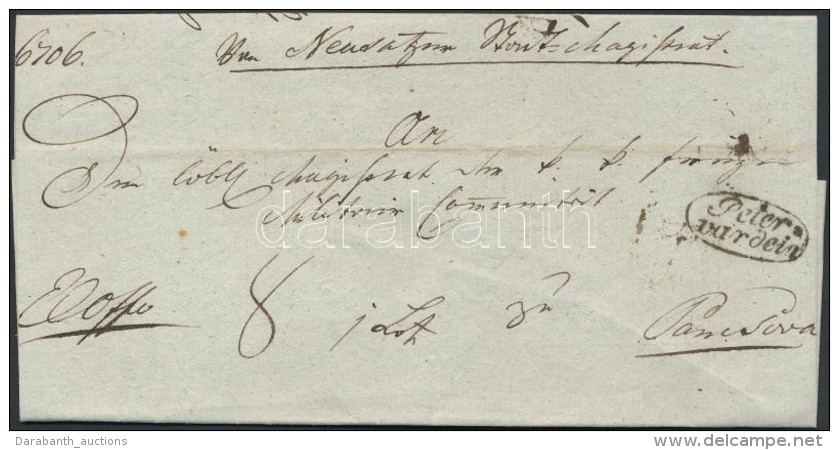 6706.
Von Neusatzer Stadt-Magistrat.
An
Den löbl Magistrat der k. k. freyen
Militair Communität
Peter=
vardein
darabanth
Ex Offo
8
1 Loth
zu
Pancsova
Darabanth_auctions
www.delcampe.net